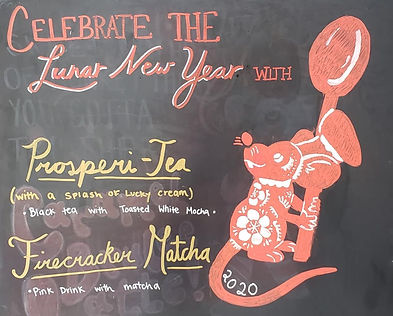 CELEBRATE THE
Lunar New Year WITH
Prosperi-Tea
(with a splash of Lucky cream)
• Black tea with Toasted White Mocha •
Firecracker Matcha
• Pink Drink with matcha
2020